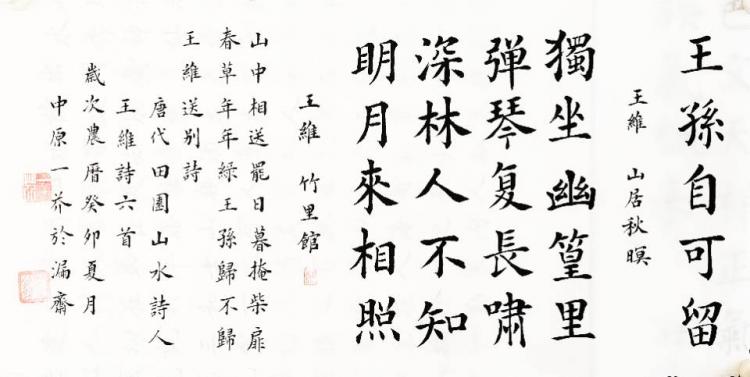 王孫自可留
王維 山居秋暝
獨坐幽篁里
弹琴复長嘯
深林人不知
明月來相照
王維 竹里館
山中相送罷日暮掩柴扉
春草年年綠王孫歸不歸
王維送别詩
唐代田園山水詩人
王維詩六首
歲次農曆癸卯夏月
中原一芥於漏齋